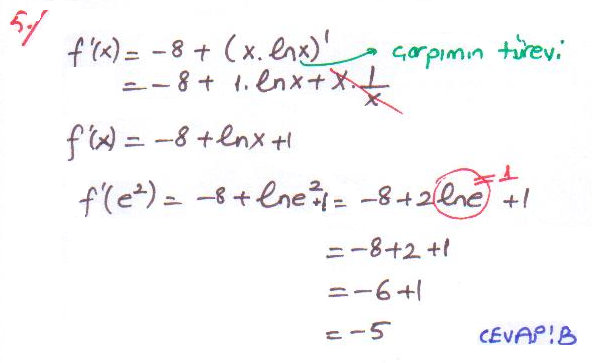 5-)
f'(x) = -8 + (x.lnx)' → çarpımın türevi
= -8 + 1.lnx + x.1/x
f'(x) = -8 + lnx + 1
f'(e²) = -8 + lne² +1 = -8 + 2 lne +1 =1
= -8+2+1
= -6+1
= -5
CEVAP:B